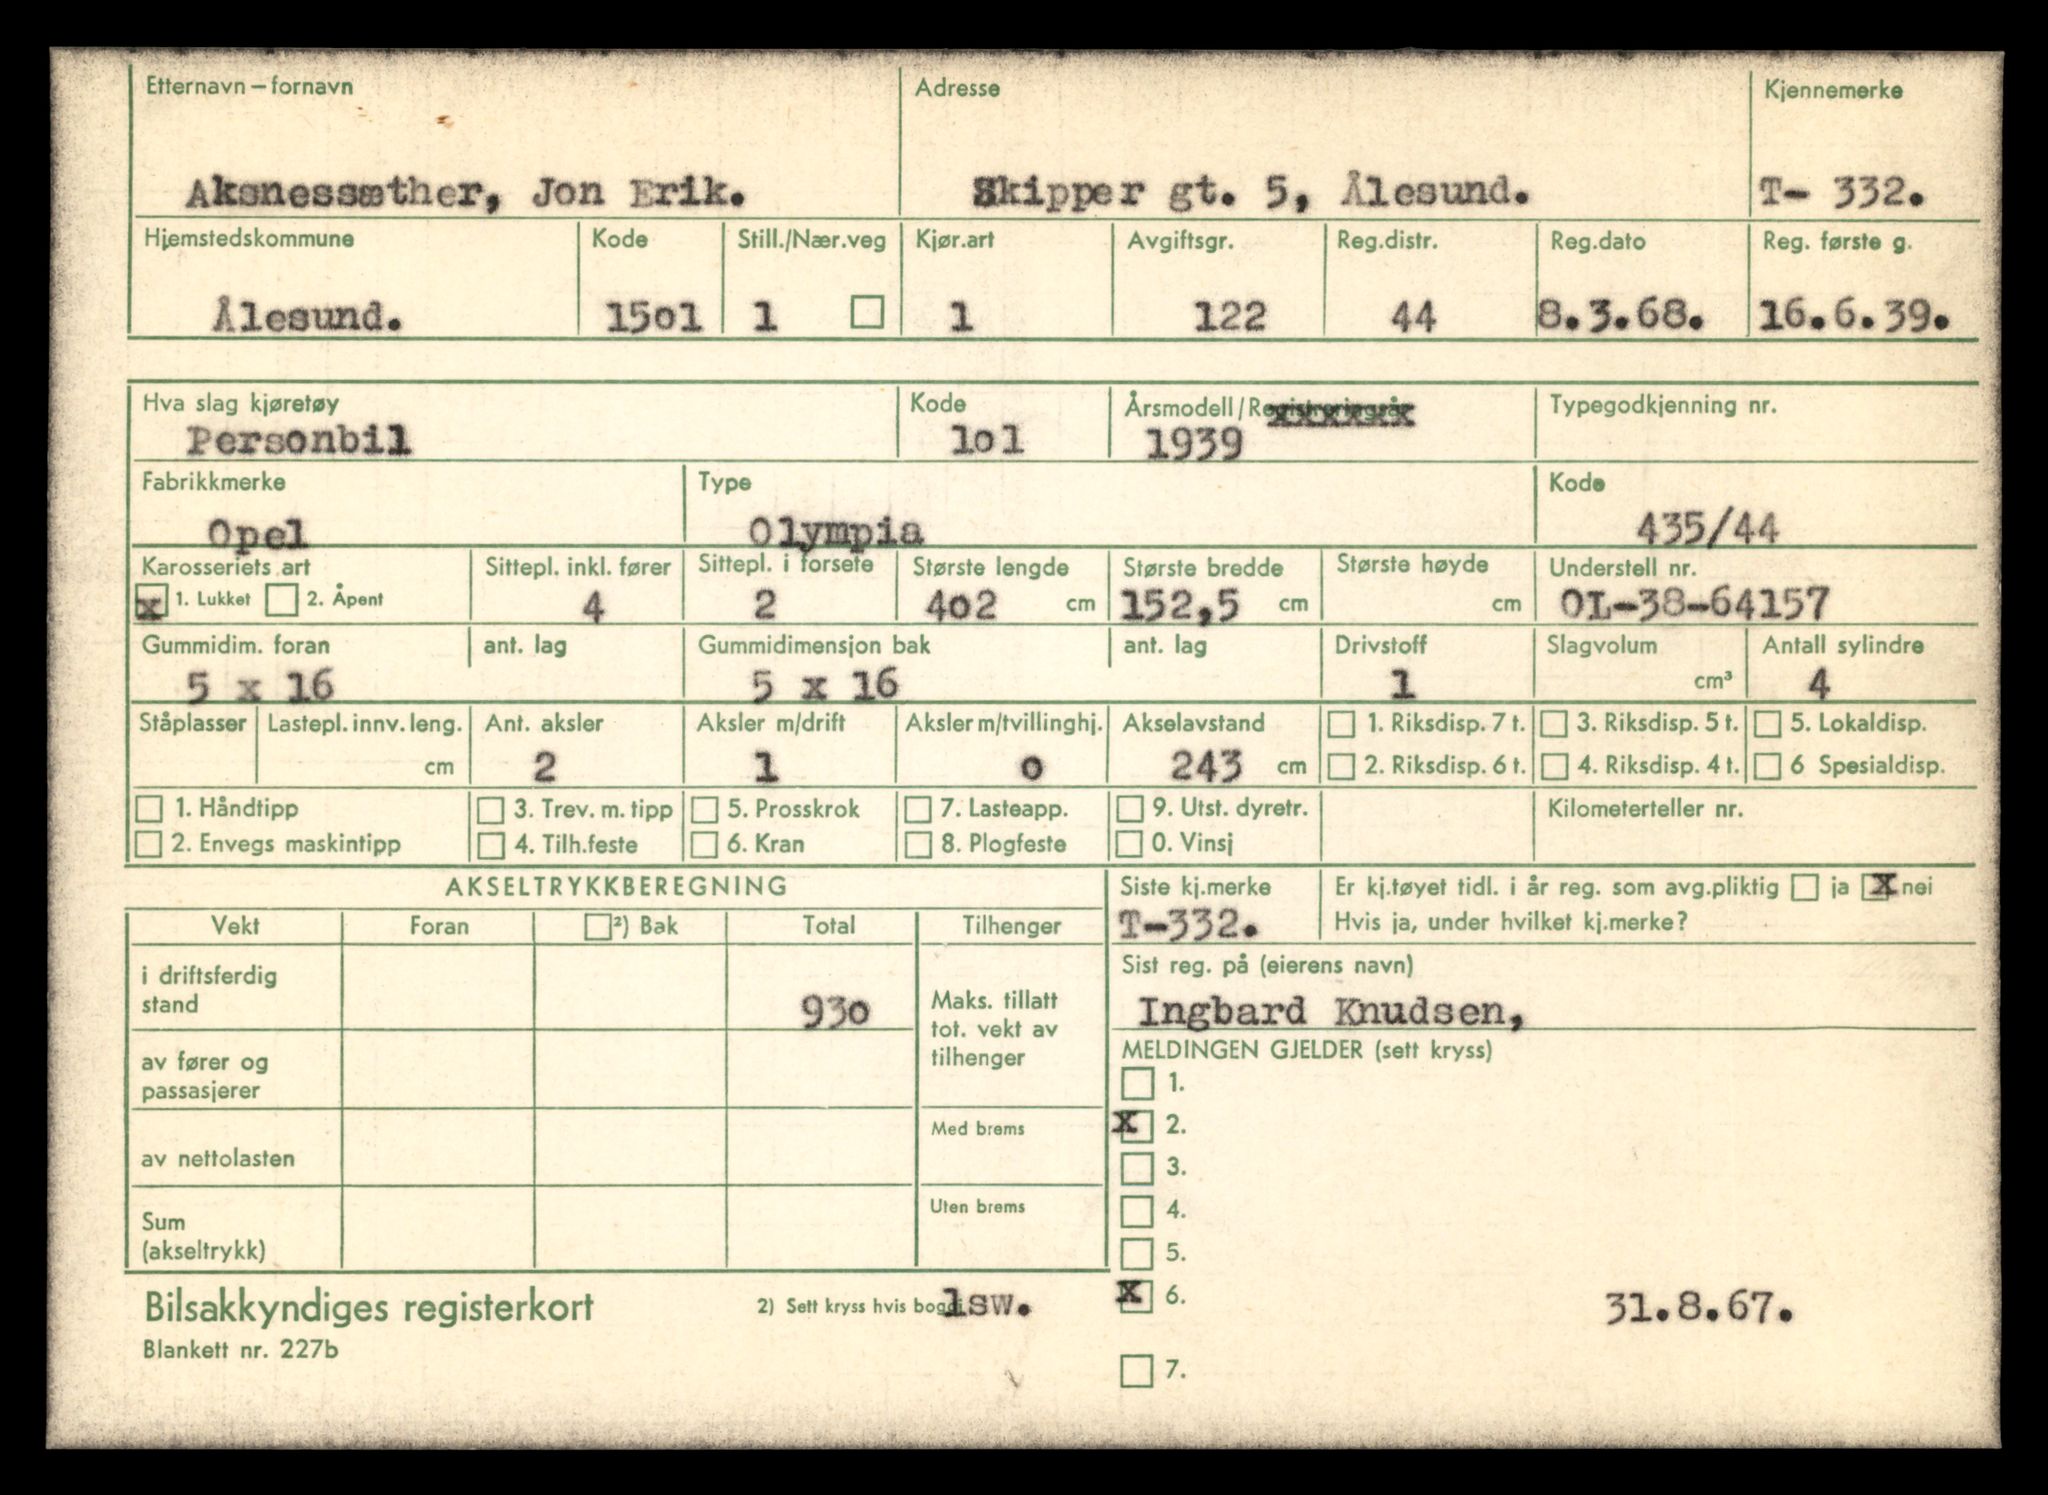 Etternavn – fornavn Adresse Kjennemerke
Aksnessæther, Jon Erik. Skipper gt. 5, Ålesund. T- 332.
Hjemstedskommune Kode Still./Nær.veg Kjør.art Avgiftsgr. Reg.distr. Reg.dato Reg. første g.
Ålesund. 15o1 1 1 122 44 8.3.68. 16.6.39.
Hva slag kjøretøy Kode Årsmodell/Registreringsår Typegodkjenning nr.
Personbil 1o1 1939
Fabrikkmerke Type Kode
Opel Olympia 435/44
Karosseriets art Sittepl. inkl. fører Sittepl. i forsete Største lengde Største bredde Største høyde Understell nr.
x 1. Lukket 2. Åpent 4 2 4o2 cm 152,5 cm cm OL-38-64157
Gummidim. foran ant. lag Gummidimensjon bak ant. lag Drivstoff Slagvolum Antall sylindre
5 x 16 5 x 16 1 cm³ 4
Ståplasser Lastepl. innv. leng. Ant. aksler Aksler m/drift Aksler m/tvillinghj. Akselavstand 1. Riksdisp. 7 t. 3. Riksdisp. 5 t. 5. Lokaldisp.
cm 2 1 o 243 cm 2. Riksdisp. 6 t. 4. Riksdisp. 4 t. 6 Spesialdisp.
1. Håndtipp 3. Trev. m. tipp 5. Prosskrok 7. Lasteapp. 9. Utst. dyretr. Kilometerteller nr.
2. Envegs maskintipp 4. Tilh.feste 6. Kran 8. Plogfeste 0. Vinsj
AKSELTRYKKBEREGNING Siste kj.merke Er kj.tøyet tidl. i år reg. som avg.pliktig ja x nei
Vekt Foran ²) Bak Total Tilhenger T-332. Hvis ja, under hvilket kj.merke?
i driftsferdig stand 93o Maks. tillatt tot. vekt av tilhenger
Sist reg. på (eierens navn)
Ingbard Knudsen,
av fører og passasjerer
MELDINGEN GJELDER (sett kryss)
1.
av nettolasten Med brems
x 2.
3.
Sum (akseltrykk) Uten brems
4.
5.
Bilsakkyndiges registerkort 2) Sett kryss hvis boggi lsw. x 6. 31.8.67.
Blankett nr. 227b
7.